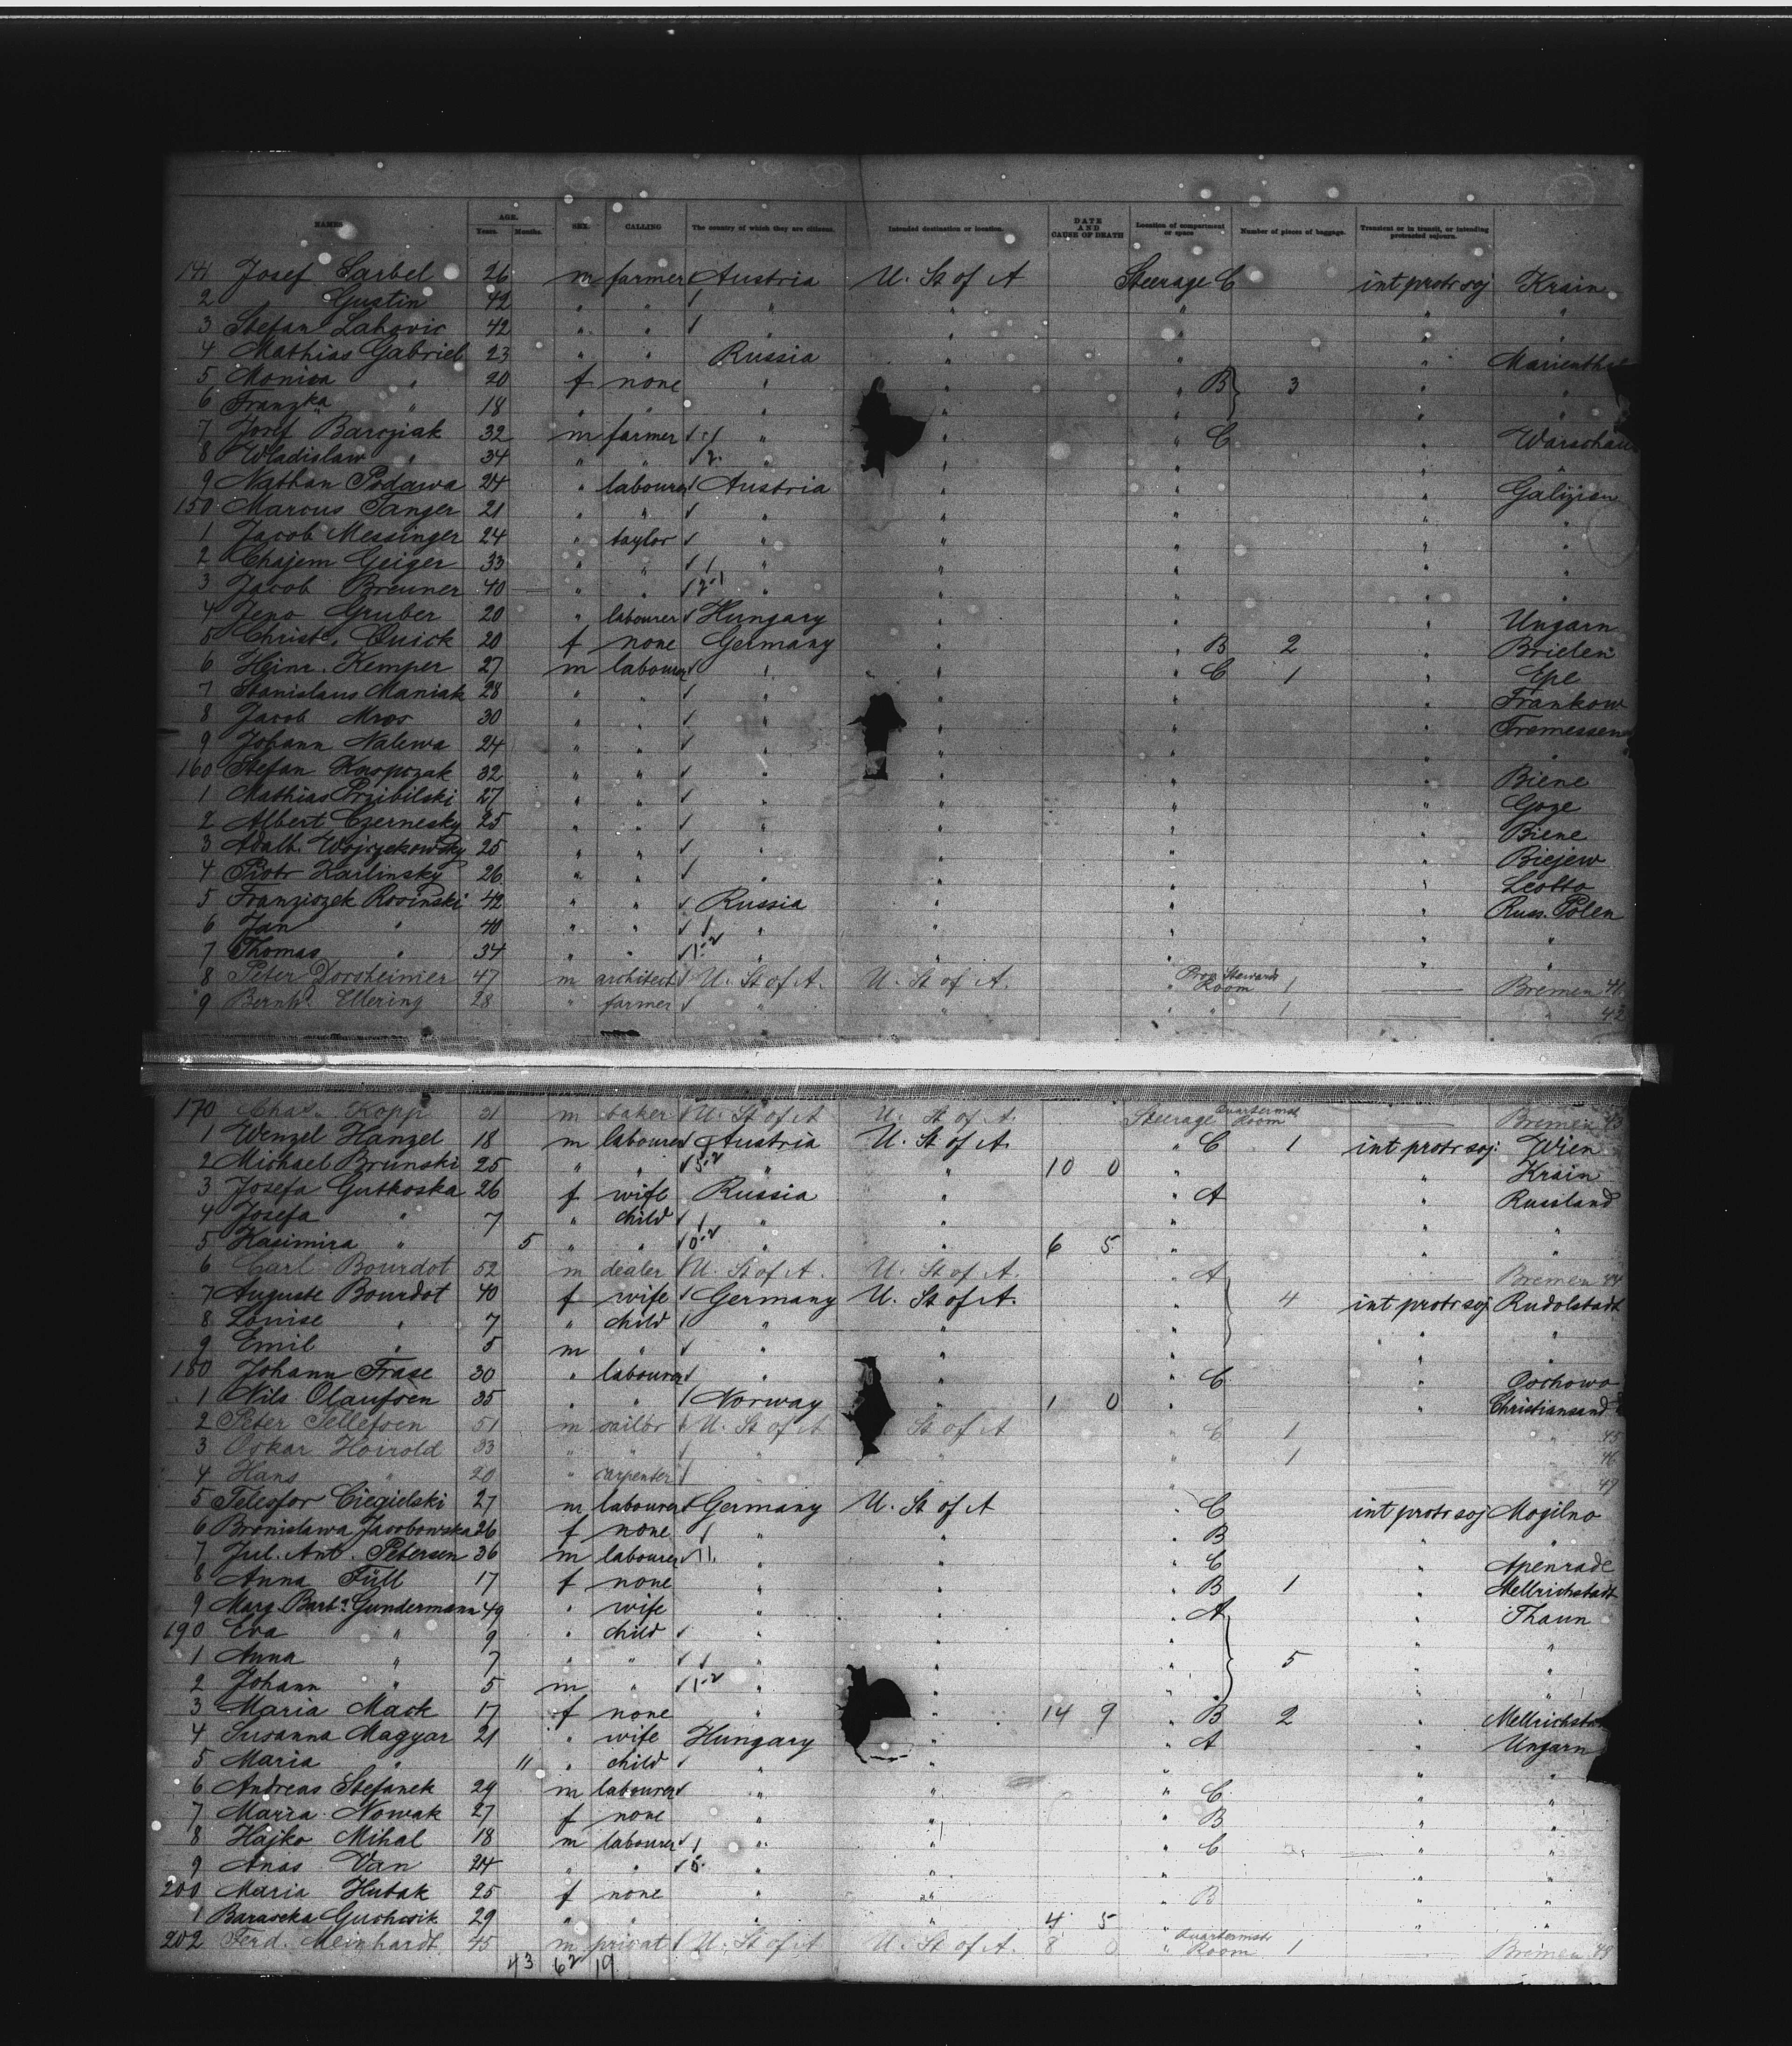 NAMES AGE. Years. Months. SEX. CALLING The country of which they are citizens. Intended destination or location. DATE AND CAUSE OF DEATH Location of compartment or space Number of pieces of baggage. Transient or in transit, or intending protracted sojourn.
141 Josef Sarbel 26 m farmer Austria U. St of A Steerage C int protr soj Krain
2 " Gustin 42 " " 1 " " " " "
3 Stefan Lahovic 42 " " 1 " " " " "
4 Mathias Gabriel 23 " " Russia " " "
5 Monica " 20 f none " " " B 3 " "
6 Franzka " 18 " " " " " " "
7 Josef Barcziak 32 m farmer " " " C "
8 Wladislaw " 34 " " 2 " " " " "
9 Nathan Podawa 24 " labourer Austria " " " Galizien
150 Marcus Tanger 21 " " " " " " "
1 Jacob Messinger 24 " taylor " " " " "
2 Chajem Geiger 33 " " 1 " " " " "
3 Jacob Breuner 40 " " 2-1 " " " " "
4 Jeno Gruber 20 " labourer Hungary " " " Ungarn
5 Christe. Quick 20 f none Germany " " B 2 " Brielen
6 Heinr. Kemper 27 m labourer " " " C 1 " Epe
7 Stanislaus Maniak 28 " " " " " " Frankow
8 Jacob Mros 30 " " " " " " Tremessen
9 Johann Nalewa 24 " " " " " " "
160 Stefan Kaspozak 32 " " " " " " Biene
1 Mathias Przibilski 27 " " " " " " Goze
2 Albert Czernesky 25 " " " " " " Biene
3 Adalb. Wojczekowsky 25 " " " " " " Biejew
4 Piotr Karlinsky 26 " " " " " "
5 Franziszek Rosinski 42 " " Russia " " " Russ. Polen
6 Jan " 40 " " 1 " " " " "
7 Thomas " 34 " " 1-2 " " " " "
8 Peter Dorsheimer 47 m architect U. St of A. U. St of A. " Stewards Room 1 Bremen 41
9 Bernh. Ellering 28 " farmer " " " " 1 " 42
170 Chas. Kopp 31 m baker U. St of A U. St of A Steerage Quartermst Room Bremen 43
1 Wenzel Hanzel 18 m labourer Austria U. St of A. " C 1 int protr soj. Wien
2 Michael Brunski 25 " " 5-2 " " 10 0 " " Krain
3 Josefa Gutkoska 26 f wife Russia " " A " Russland
4 Josefa " 7 " child 1 " " " " "
5 Kasimira " 5 " " 0-2 " " 6 5 " " "
6 Carl Bourdot 52 m dealer U. St of A. U. St of A. " A Bremen 44
7 Auguste Bourdot 40 f wife Germany U. St of A. " 4 int protr soj Rudolstadt
8 Louise " 7 " child " " " " "
9 Emil " 5 m " " " " " "
180 Johann Frase 30 " labourer " " " C " Oochowo
1 Nils Olaufsen 35 " " 1 Norway " 1 0 " " Christiansand
2 Peter Tellefsen 51 m sailor U. St of A St of A " C 1 " 45
3 Oskar Hoirold 33 " " " " " 1 46
4 Hans " 20 " carpenter " " 47
5 Telesfor Ciegielski 27 m labourer Germany U. St of A " C int protr soj Mogilno
6 Bronislawa Jacobowska 26 f none 1 " " " B " "
7 Jul. Ant. Petersen 36 m labourer 11. " " " C " Apenrade
8 Anna Füll 17 f none " " " B 1 " Mellrichstadt
9 Marg. Barba. Gundermann 49 " wife " " " A " Thaun
190 Eva " 9 " child " " " " "
1 Anna " 7 " " 1 " " " 5 " "
2 Johann " 5 m " 1-2 " " " " "
3 Maria Mack 17 f none " " 14 9 " B 2 "
4 Susanna Magyar 21 " wife Hungary " " A " Ungarn
5 Maria " 11 " child " " " " "
6 Andreas Stefanek 29 m labourer " " " C " "
7 Maria Nowak 27 f none " " " B " "
8 Hajko Mihal 18 m labourer 1 " " " C " "
9 Anas Van 24 " " 5 " " " " "
200 Maria Hutak 25 f none " " " B " "
1 Barascka 29 " " " " 4 5 " " "
202 Ferd. Meinhardt 45 m privat U. St of A U. St of A. 8 0 " Quartermst Room 1 Bremen 48
43 62 19